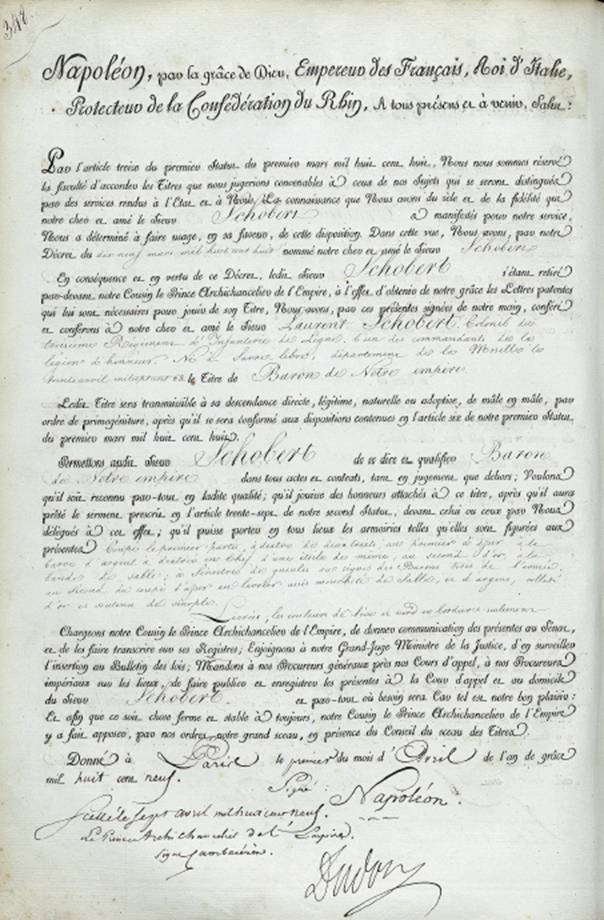 348.
Napoléon, par la grâce de Dieu, Empereur des Français, Roi d'Italie,
Protecteur de la Confédération du Rhin, A tous présens et à venir, Salut:
Par l'article treize du premier Statut du premier mars mil huit cent huit, Nous nous sommes réservé
la faculté d'accorder les Titres que nous jugerions convenables à ceux de nos Sujets qui se seront distingués
par des services rendus à l'Etat et à Nous. La connaissance que Nous avons du zèle et de la fidélité que
notre cher et amé le Sieur Schobert a manifestés pour notre service,
Nous a déterminé à faire usage, en sa faveur, de cette disposition. Dans cette vue, Nous avons, par notre
Décret du dix neuf mars mil huit cent huit nommé notre cher et amé le Sieur Schobert
En conséquence et en vertu de ce Décret, ledit Sieur Schobert s'étant retiré
par-devant notre Cousin le Prince Archichancelier de l'Empire, à l'effet d'obtenir de notre grâce les Lettres patentes
qui lui sont nécessaires pour jouir de son Titre, Nous avons, par ces présentes signées de notre main, conféré
et conférons à notre cher et amé le Sieur Laurent Schobert, Colonel du
troisieme Régiment d'Infanterie de Ligne, l'un des commandants de la
légion d'honneur, Né à Sarre libre, département de la Moselle le
trente avril mil sept cent 63. le Titre de Baron de Notre empire
Ledit Titre sera transmissible à sa descendance directe, légitime, naturelle ou adoptive, de mâle en mâle, par
ordre de primogéniture, après qu'il se sera conformé aux dispositions contenues en l'article six de notre premier Statut
du premier mars mil huit cent huit.
Permettons audit Sieur Schobert de se dire et qualifier Baron
de Notre empire dans tous actes et contrats, tant en jugement que dehors; Voulons
qu'il soit reconnu par-tout en ladite qualité; qu'il jouisse des honneurs attachés à ce titre, après qu'il aura
prêté le serment prescrit en l'article trente-sept de notre second Statut, devant celui ou ceux par Nous
délégués à cet effet; qu'il puisse porter en tous lieux les armoiries telles qu'elles sont figurées aux
présentes Coupé le premier parti, à dextre de deux traits, au premier d'azur à la
barre d'argent à dextre en chef d'une étoile du même, au second d'or à la
bande de sable; à Sénestre de gueules au signe des Barons tirés de l'armée;
au second du coupé d'azur au levrier de sable, et d'argent, colleté
d'or et soutenu de sinople
Livrées, les couleurs de
Chargeons notre Cousin le Prince Archichancelier de l'Empire, de donner communication des présentes au Sénat,
et de les faire transcrire sur ses Registres; Enjoignons à notre Grand-Juge Ministre de la Justice, d'en surveiller
l'insertion au Bulletin des lois; Mandons à nos Procureurs généraux près nos Cours d'appel, à nos Procureurs
impériaux sur les lieux, de faire publier et enregistrer les présentes à la Cour d'appel et au domicile
du Sieur Schobert et par-tout où besoin sera. Car tel est notre bon plaisir:
Et afin que ce soit chose ferme et stable à toujours, notre Cousin le Prince Archichancelier de l'Empire
y a fait apposer, par nos ordres, notre grand sceau, en présence du Conseil du sceau des Titres.
Donné à Paris le premier du mois d'Avril de l'an de grâce
mil huit cent neuf. Signé:
Napoléon.
Scellé le Sept avril mil huit cent neuf.
Le Prince Archi Chancelier de l'Empire.
Signé Cambacérès.
Dudon